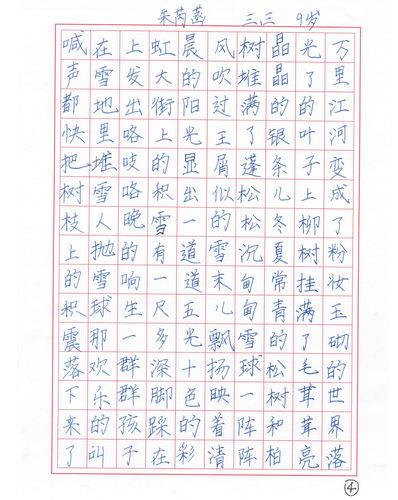 朱芮菡 三三 9岁
万里江河变成了粉妆玉砌的世界落
光了的叶子上柳树挂满了毛茸茸亮
晶晶的银条儿冬夏常青的松树和柏
树堆满了蓬松松沉甸甸雪球一阵阵
风吹过王屑似的雪末儿飘扬映着清
晨的阳光显出一道道五光十色的彩
虹大街上的积雪有一尺多深脚踩在
上发出咯吱咯晚的响生一群群孩子
在雪地里堆雪人抛雪球那欢乐的叫
喊声都快把树枝上的积震落下来了
④